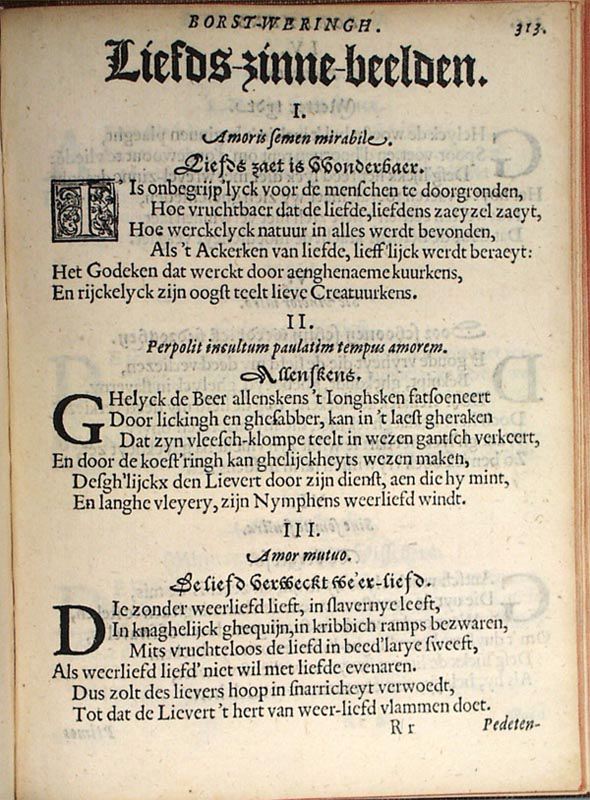 BORST-WERINGH.
313.
Liefds-zinne-beelden.
I.
Amoris semen mirabile.
Liefds zaet is Wonderbaer.
TIs onbegrijp'lyck voor de menschen te doorgronden,
Hoe vruchtbaer dat de liefde, liefdens zaeyzel zaeyt,
Hoe werckelyck natuur in alles werdt bevonden,
Als 't Ackerken van liefde, lieff'lijck werdt beraeyt:
Het Godeken dat werckt door aenghenaeme kuurkens,
En rijckelyck zijn oogst teelt lieve Creatuurkens.
II.
Perpolit incultum paulatim tempus amorem.
Allenskens.
GHelyck de Beer allenskens 't Ionghsken fatsoeneert
Door lickingh en ghesabber, kan in 't laest gheraken
Dat zyn vleesch-klompe teelt in wezen gantsch verkeert,
En door de koest'ringh kan ghelijckheyts wezen maken,
Desgh'lijckx den Lievert door zijn dienst, aen die hy mint,
En langhe vleyery, zijn Nymphens weerliefd windt.
III.
Amor mutuo.
De liefd verweckt we'er-liefd.
DIe zonder weerliefd lieft, in slavernye leeft,
In knaghelijck ghequijn, in kribbich ramps bezwaren,
Mits vruchteloos de liefd in beed'larye sweeft,
Als weerliefd liefd' niet wil met liefde evenaren.
Dus zolt des lievers hoop in snarricheyt verwoedt,
Tot dat de Lievert 't hert van weer-liefd vlammen doet.
R r
Pedeten-